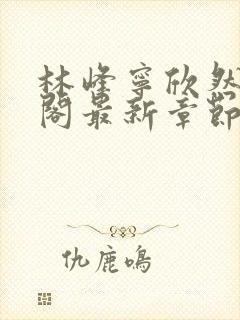 林峰寧欣然
閣最新章節
仇鹿鳴